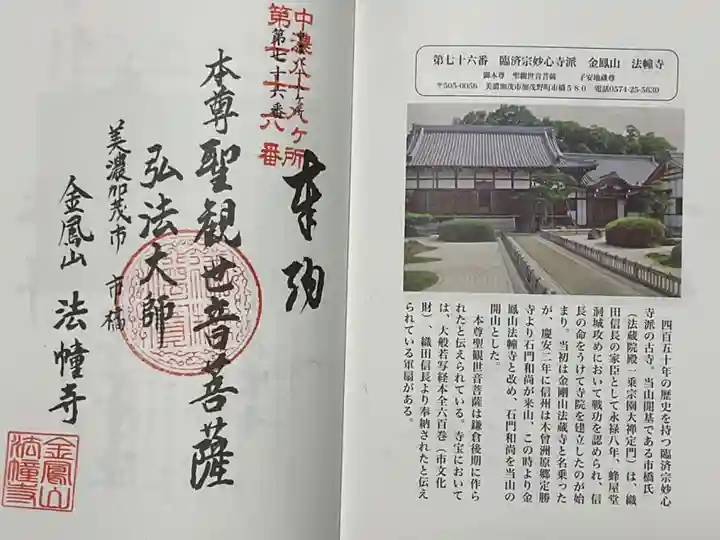 奉納
中濃八十八ヶ所
第七十六番
本尊聖観世音菩薩
弘法大師
美濃加茂市 市橋
金鳳山 法幢寺
金鳳山
法幢寺
第七十六番　臨済宗妙心寺派　金鳳山　法幢寺
御本尊　聖観世音菩薩　子安地蔵尊
〒505-0056　美濃加茂市加茂野町市橋５８０　電話0574-25-5639
四百五十年の歴史を持つ臨済宗妙心
寺派の古寺。当山開基である市橋氏
（法蔵院殿一乗宗園大禅定門）は、織
田信長の家臣として永禄八年、蜂屋堂
洞城攻めにおいて戦功を認められ、信
長の命をうけて寺院を建立したのが始
まり。当初は金剛山法蔵寺と名乗った
が、慶安二年に信州は木曽洲原郷定勝
寺より石門和尚が来山、この時より金
鳳山法幢寺と改め、石門和尚を当山の
開山とした。
本尊聖観世音菩薩は鎌倉後期に作ら
れたと伝えられている。寺宝において
は、大般若写経本全六百巻（市文化
財）、織田信長より奉納されたと伝え
られている軍扇がある。